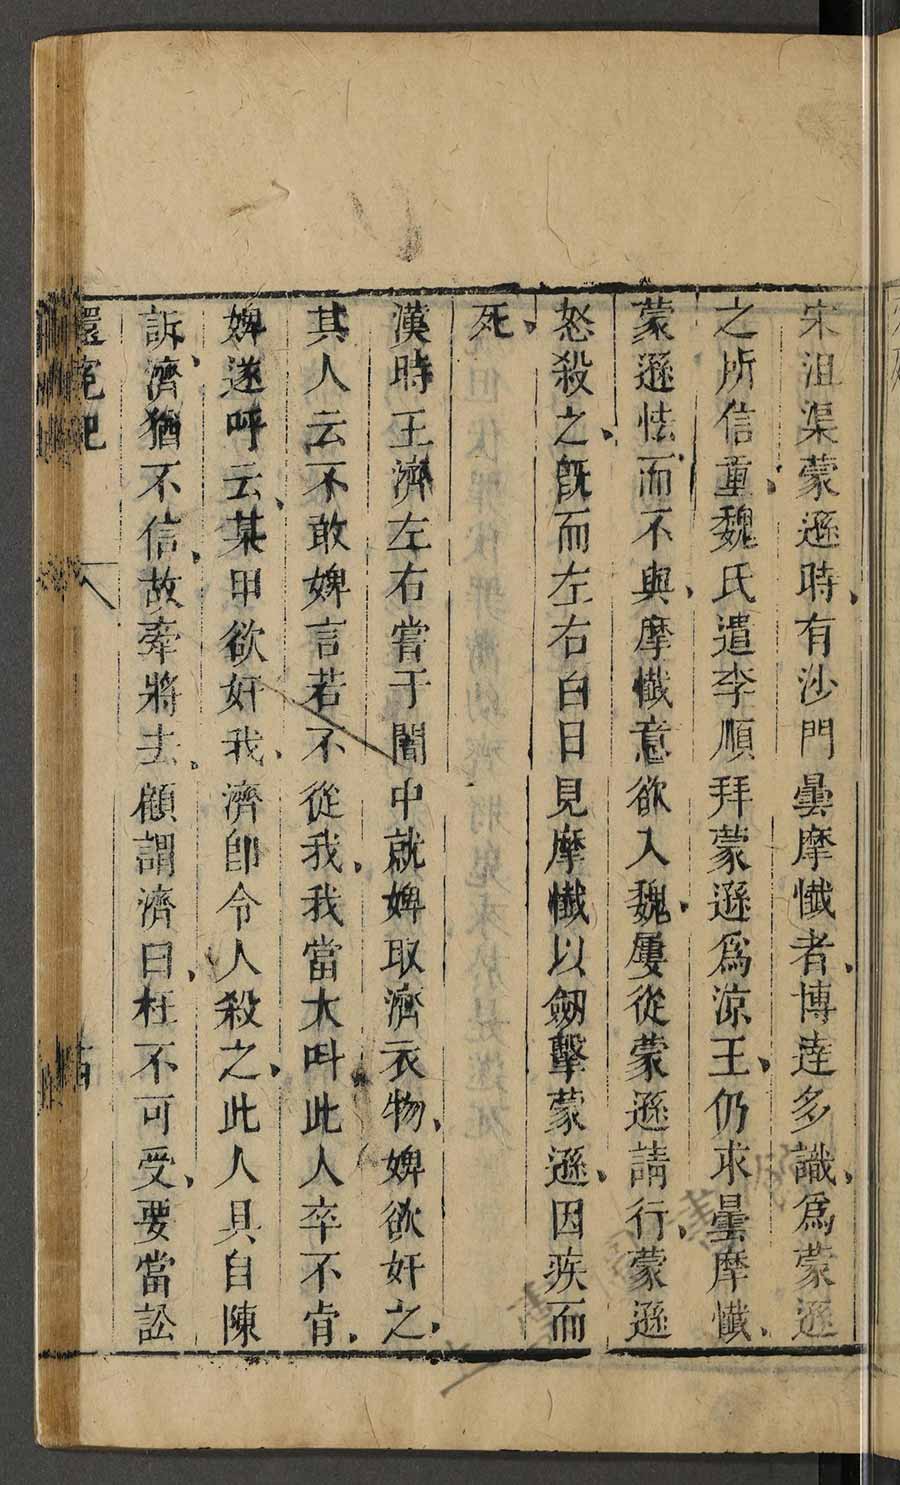 宋沮渠蒙遜時、有沙門曇摩懺者、博達多識、爲蒙遜
之所信重、魏氏遣李順拜蒙遜爲涼王、仍求曇摩懺、
蒙遜怯而不與、摩懺意欲入魏、屢從蒙遜請行、蒙遜
怒殺之、旣而左右白日見摩懺以劒擊蒙遜、因疾而
死、
漢時王濟左右嘗于闇中就婢取濟衣物、婢欲奸之、
其人云不敢婢言若不從我、我當大呌此人卒不肯、
婢遂呼云、某甲欲奸我、濟卽令人殺之、此人具自陳
訴、濟猶不信、故牽將去、顧謂濟曰、枉不可受、要當訟
還冤記
八